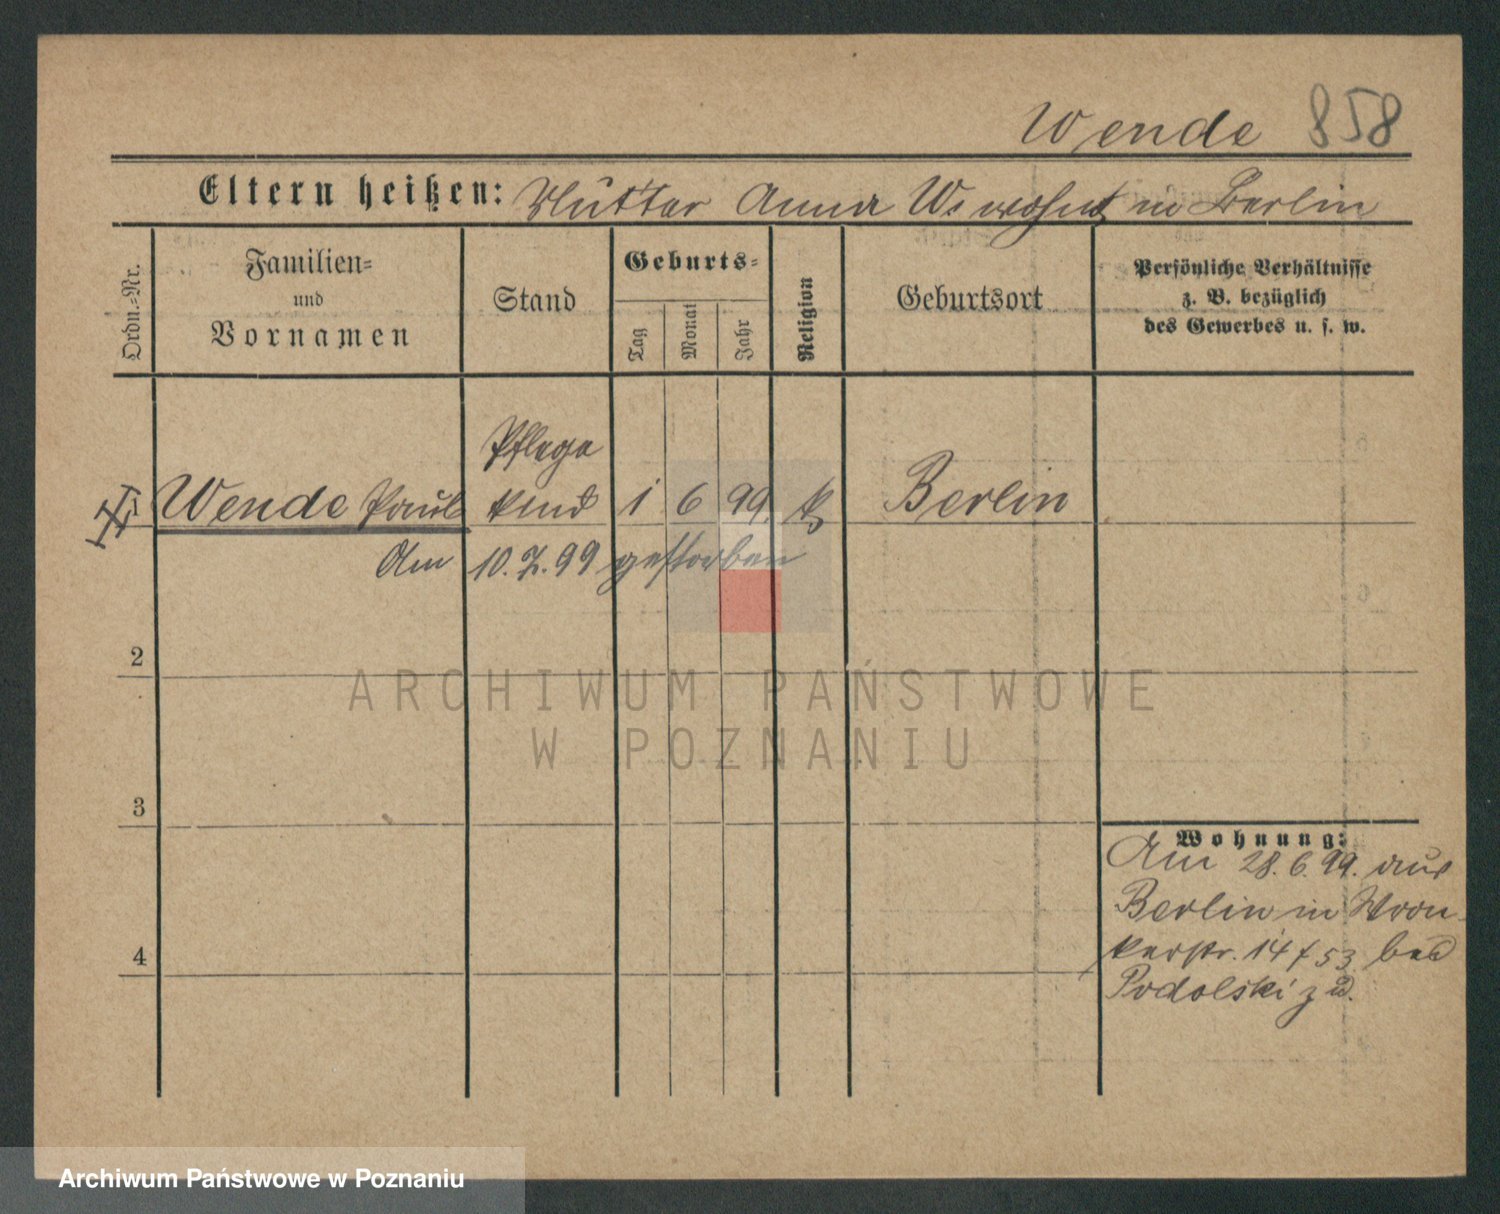 Wende 858
Eltern heißen: Mutter Anna W. wohnt in Berlin
Ordn.=Nr.
Familien=
und
Vornamen
Stand
Geburts=
Tag
Monat
Jahr
Religion
Geburtsort
Persönliche Verhältnisse
z. B. bezüglich
des Gewerbes u. s. w.
Pflege
1 Wende Paul kind 1 6 99. k Berlin
Am 10.7.99 gestorben
2
ARCHIWUM PAŃSTWOWE
W POZNANIU
3
Wohnung:
Am 28.6.99. aus
Berlin in Wron-
kerstr. 14 / 53 bei
Podolski zu.
4
Archiwum Państwowe w Poznaniu